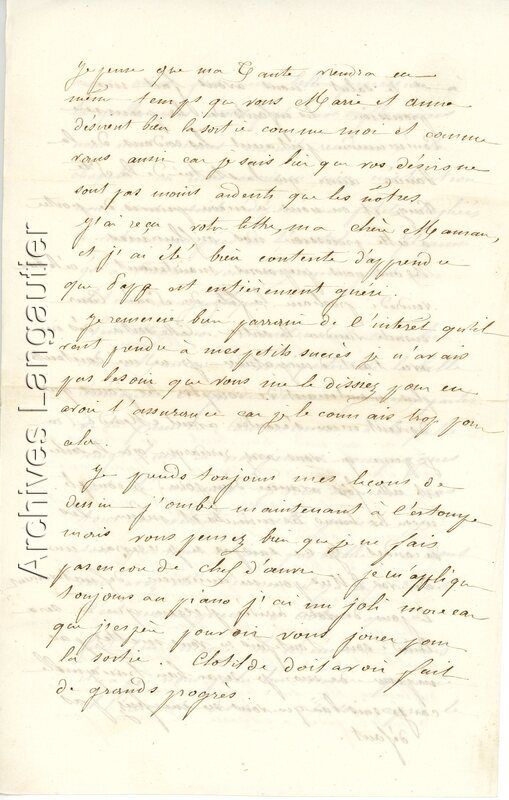 Je pense que ma Tante viendra en
même temps que vous Marie et Anne
désirent bien la sortie comme moi et comme
vous aussi car je sais bien que vos désirs ne
sont pas moins ardents que les nôtres.
J'ai reçu votre lettre, ma chère Maman,
et j'ai été bien contente d'apprendre
que est entièrement guéri.
Je remercie bien parrain de l'intérêt qu'il
veut prendre à mes petits succès je n'avais
pas besoin que vous me le dissiez pour en
avoir l'assurance car je le connais trop pour
cela.
Je prends toujours mes leçons de
dessin j'ombe maintenant à l'estompe
mais vous pensez bien que je ne fais
pas encore de chef d'œuvre. Je m'applique
toujours au piano j'ai un joli morceau
que j'espère pouvoir vous jouer pour
la sortie. Clotilde doit avoir fait
de grands progrès.
Archives Langautier